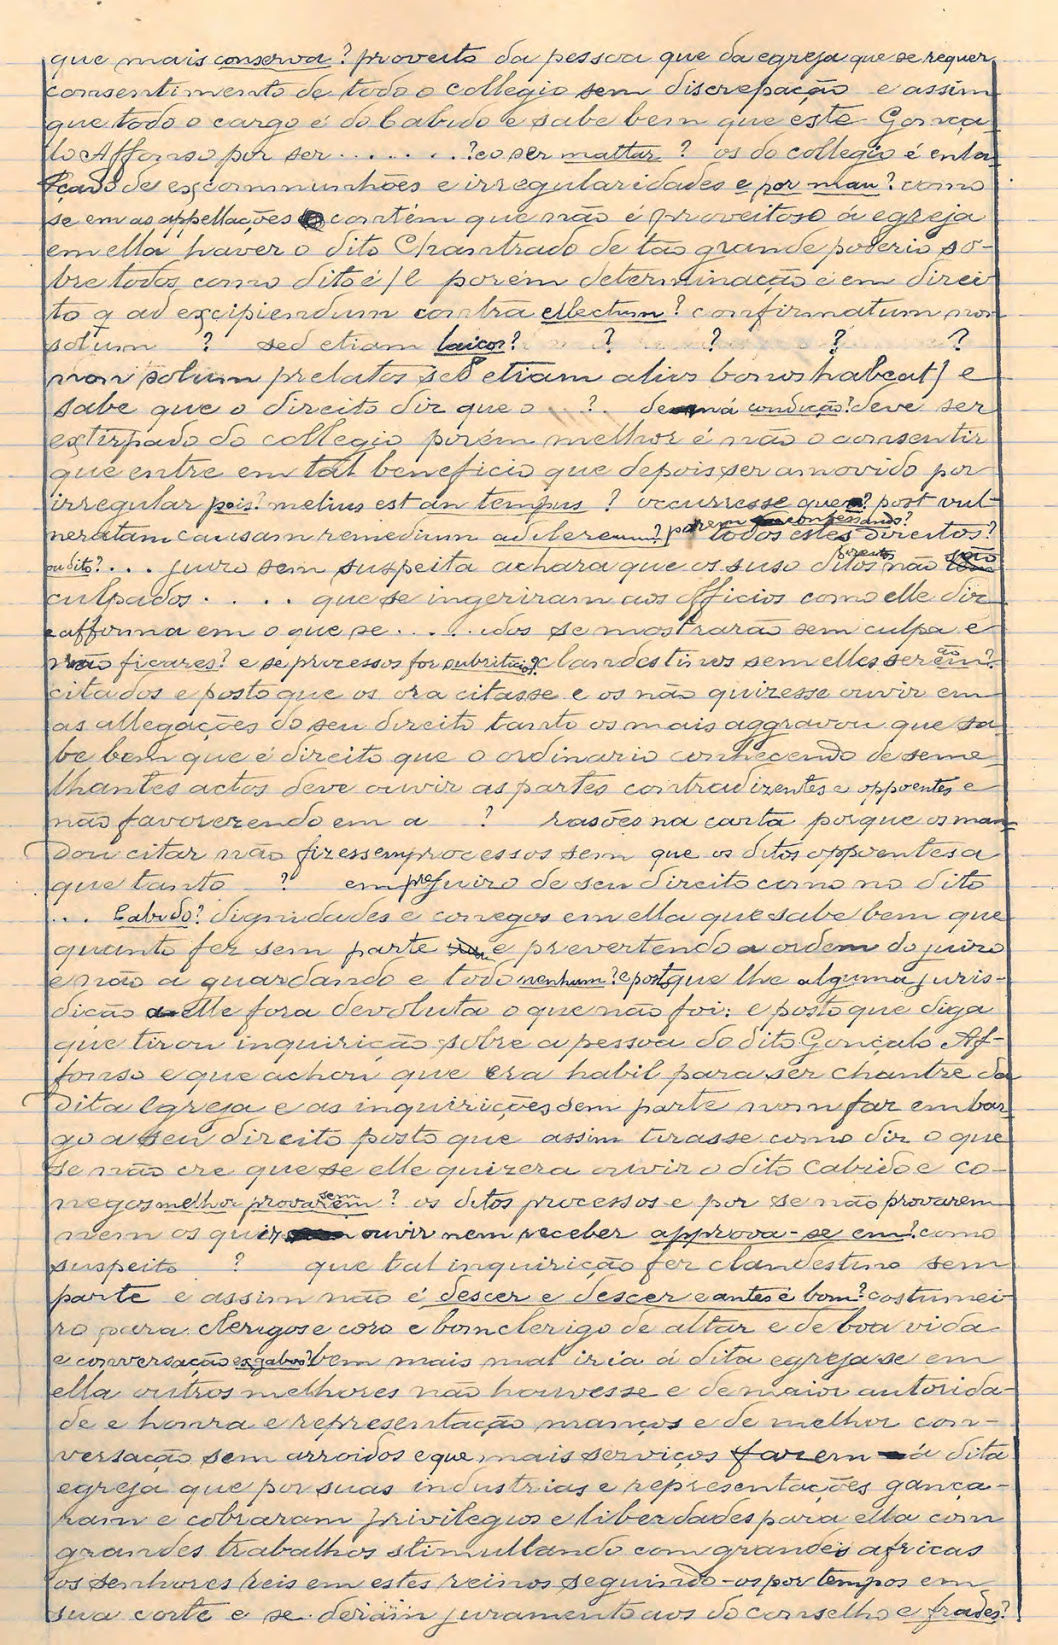 que mais conserva? proveito da pessoa que da egreja que se requer
consentimento de todo o collegio sem discrepação e assim
que todo o cargo é do Cabido e sabe bem que este Gonça-
lo Affonso por ser . . . . . . . ? eo ser mattar ? os do collegio é enla-
çado de excommunhões e irregularidades e por mau? como
se em as appellações contém que não é proveitoso á egreja
em ella haver o dito Chantrado de tão grande poderio so-
bre todos como dito é/e porém determinação é em direi
to q ad excipiendum contra electum? confirmatum non
solum ? sed etiam laicos? ? ? ? ?
non solum prelatos sed etiam alios bonos habeat/ e
sabe que o direito diz que o . . ? . de má condição? deve ser
extirpado do collegio porém melhor é não o consentir
que entre em tal beneficio que depois ser amovido por
irregular pois? melius est an tempus ? occurresse que? post vul-
neratam causam remedium porem confessando? todos estes direitos?
ou dito? . . . juizo sem suspeita achara que os suso ditos direitos não são
culpados . . . . que se ingeriram aos officios como elle diz
e affirma em o que se . . . . . idos se mostrarão sem culpa e
não ficares? e se processos fez subriticios? clandestinos sem elles serem?
citados e posto que os ora citasse e os não quizesse ouvir em
as allegações do seu direito tanto os mais aggravou que sa-
be bem que é direito que o ordinario conhecendo de seme-
lhantes actos deve ouvir as partes contradizentes e oppoentes e
não favorezendo em a ? rasões na carta porque os man-
dou citar não fizessem processos sem que os ditos oppoentes a
que tanto ? em prejuizo de seu direito como no dito
. . . Cabido? dignidades e conegos em ella que sabe bem que
quanto fez sem parte e prevertendo a ordem do juizo
e não a guardando e todo nenhum? e posto que lhe alguma juris-
dição a elle fora devoluta o que não foi: e posto que diga
que tirou inquirição sobre a pessoa do dito Gonçalo Af-
fonso e que achou que era habil para ser chantre da
dita Egreja e as inquirições sem parte nom faz embar-
go a seu direito posto que assim tirasse como diz o que
se não cre que se elle quizera ouvir o dito Cabido e co-
negos melhor provarem sem ? os ditos processos e por se não provarem
nem os quiz ouvir nem receber approva-se em? como
suspeito ? que tal inquirição fez clandestino sem
parte e assim não é descer e descer e antes é bom? costumei-
ro para clerigos e coro e bom clerigo de altar e de boa vida
e conversação bem mais mal iria á dita egreja se em
ella outros melhores não houvesse e de maior autorida-
de e honra e representação manços e de melhor con-
versação sem arroidos e que mais serviços fazem á dita
egreja que por suas industrias e representações gança-
ram e cobraram privilegios e liberdades para ella com
grandes trabalhos stimullando com grandes africas
os senhores reis em estes reinos seguindo-os por tempos em
sua corte e se deram juramento aos do conselho e frades?